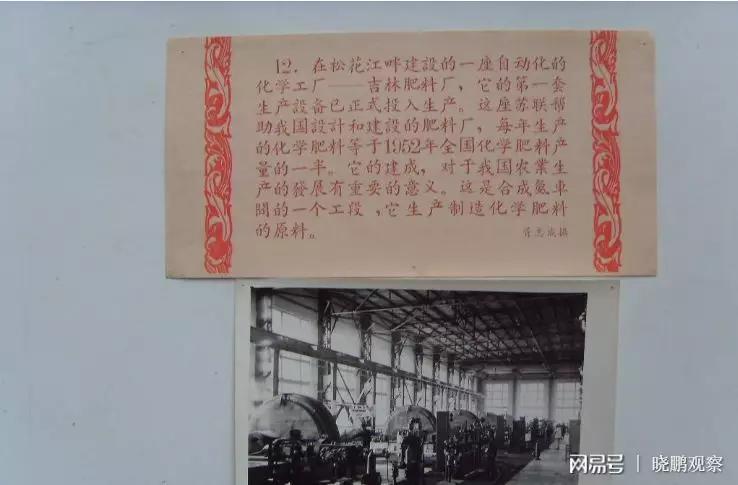 12. 在松花江畔建設的一座自动化的
化学工厂——吉林肥料厂，它的第一套
生产設备已正式投入生产。这座苏联帮
助我国設計和建設的肥料厂，每年生产
的化学肥料等于1952年全国化学肥料产
量的一半。它的建成，对于我国农業生
产的發展有重要的意义。这是合成氨車
間的一个工段，它生产制造化学肥料
的原料。
网易号 | 晓鹏观察